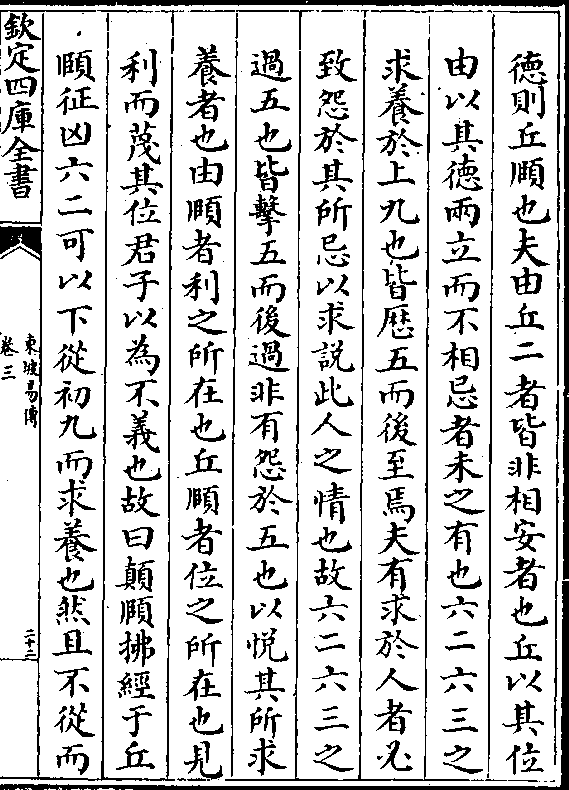 德則丘頤也夫由丘二者皆非相安者也丘以其位
由以其德兩立而不相忌者未之有也六二六三之
求養於上九也皆歴五而後至焉夫有求於人者必
致怨於其所忌以求説此人之情也故六二六三之
過五也皆擊五而後過非有怨於五也以悦其所求
養者也由頤者利之所在也丘頤者位之所在也見
利而蔑其位君子以為不義也故曰顛頤拂經于丘
頤征凶六二可以下從初九而求養也然且不從而
欽定四庫全書
東坡易傳
卷三
二十三